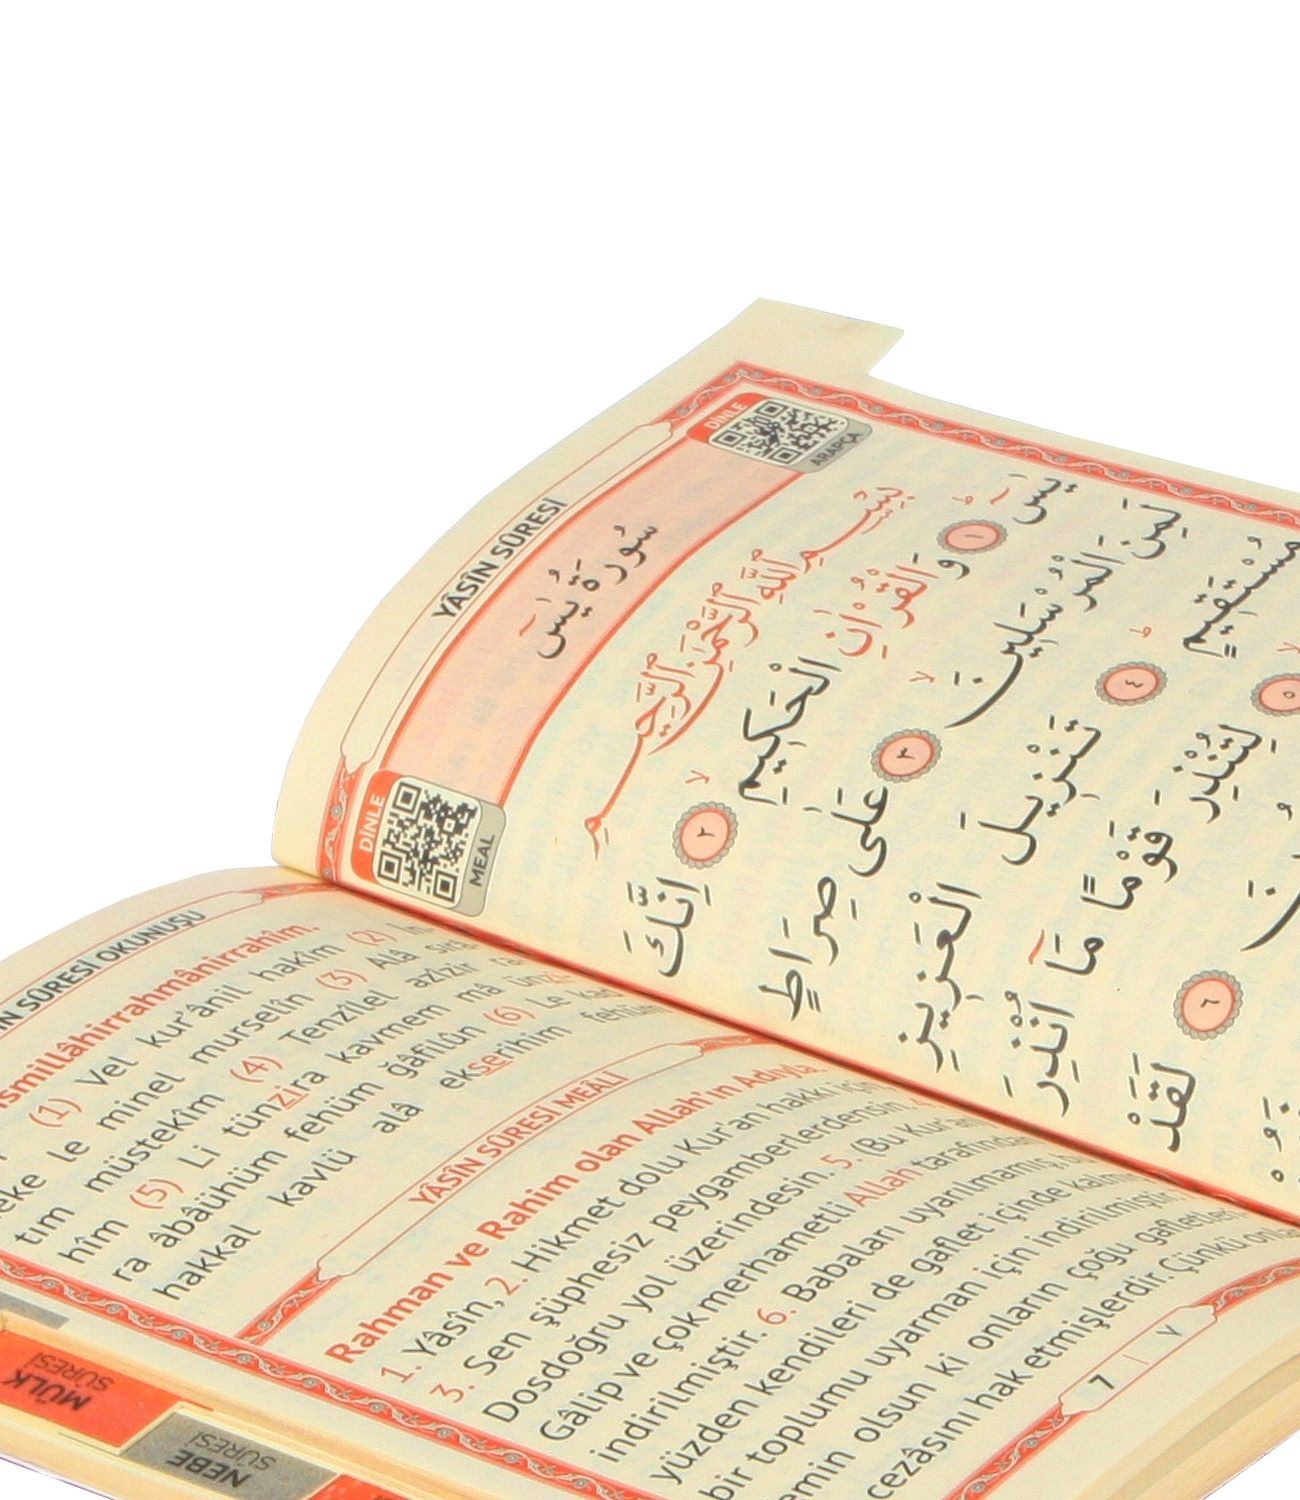 YÂSÎN SÛRESİ
DİNLE
ARAPÇA
سُورَةُ يٰسٓ
DİNLE
MEAL
بِسْمِ اللّٰهِ الرَّحْمٰنِ الرَّحِيمِ
يٰسٓ ﴿١﴾ وَالْقُرْاٰنِ الْحَكِيمِ ﴿٢﴾ اِنَّكَ
لَمِنَ الْمُرْسَلِينَ ﴿٣﴾ عَلٰى صِرَاطٍ
مُسْتَقِيمٍ ﴿٤﴾ تَنْزِيلَ الْعَزِيزِ
﴿٥﴾ لِتُنْذِرَ قَوْمًا مَٓا اُنْذِرَ
﴿٦﴾ لَقَدْ
SÛRESİ OKUNUŞU
(1) Vel kur'ânil hakîm (2) İn-
neke le minel murselîn (3) Alâ sırâ-
tim müstekîm (4) Tenzîlel azîzir ra-
hîm (5) Li tünzira kavmem mâ ün
ra âbâühüm fehüm ğâfilûn (6) Le kad
hakkal kavlü alâ ekserihim fehüm
YÂSÎN SÛRESİ MEÂLİ
Rahman ve Rahim olan Allah'ın Adıyla.
1. Yâsîn, 2. Hikmet dolu Kur'an hakkı için
3. Sen şüphesiz peygamberlerdensin.
Dosdoğru yol üzerindesin. 5. (Bu Kur'an
Gâlip ve çok merhametli Allah tarafından
indirilmiştir. 6. Babaları uyarılmamış,
yüzden kendileri de gaflet içinde
bir toplumu uyarman için indirilmiştir.
emin olsun ki onların çoğu
cezâsını hak etmişlerdir. Çünkü
7 | ٧
MÜLK
SÛRESİ
NEBE
SÛRESİ